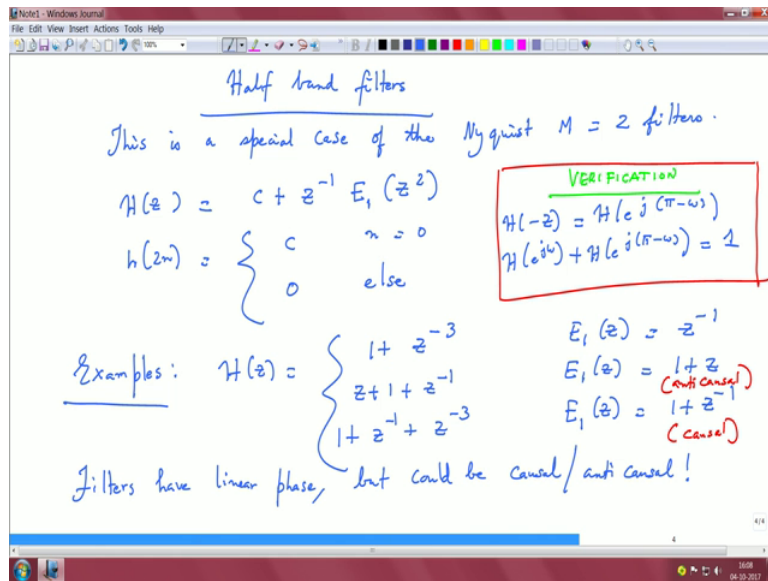 Note1 - Windows Journal
File Edit View Insert Actions Tools Help
100%
Half band filters
This is a special case of the Nyquist M = 2 filters.
H(z) = c + z⁻¹ E₁(z²)
h(2n) = { c n = 0
0 else
VERIFICATION
H(-z) = H(e^{j(π-ω)})
H(e^{jω}) + H(e^{j(π-ω)}) = 1
Examples: H(z) = { 1 + z⁻³ E₁(z) = z⁻¹
z + 1 + z⁻¹ E₁(z) = 1 + z
(anti causal)
1 + z⁻¹ + z⁻³ E₁(z) = 1 + z⁻¹
(causal)
Filters have linear phase, but could be causal/anti causal!
4/4
4
16:08
04-10-2017